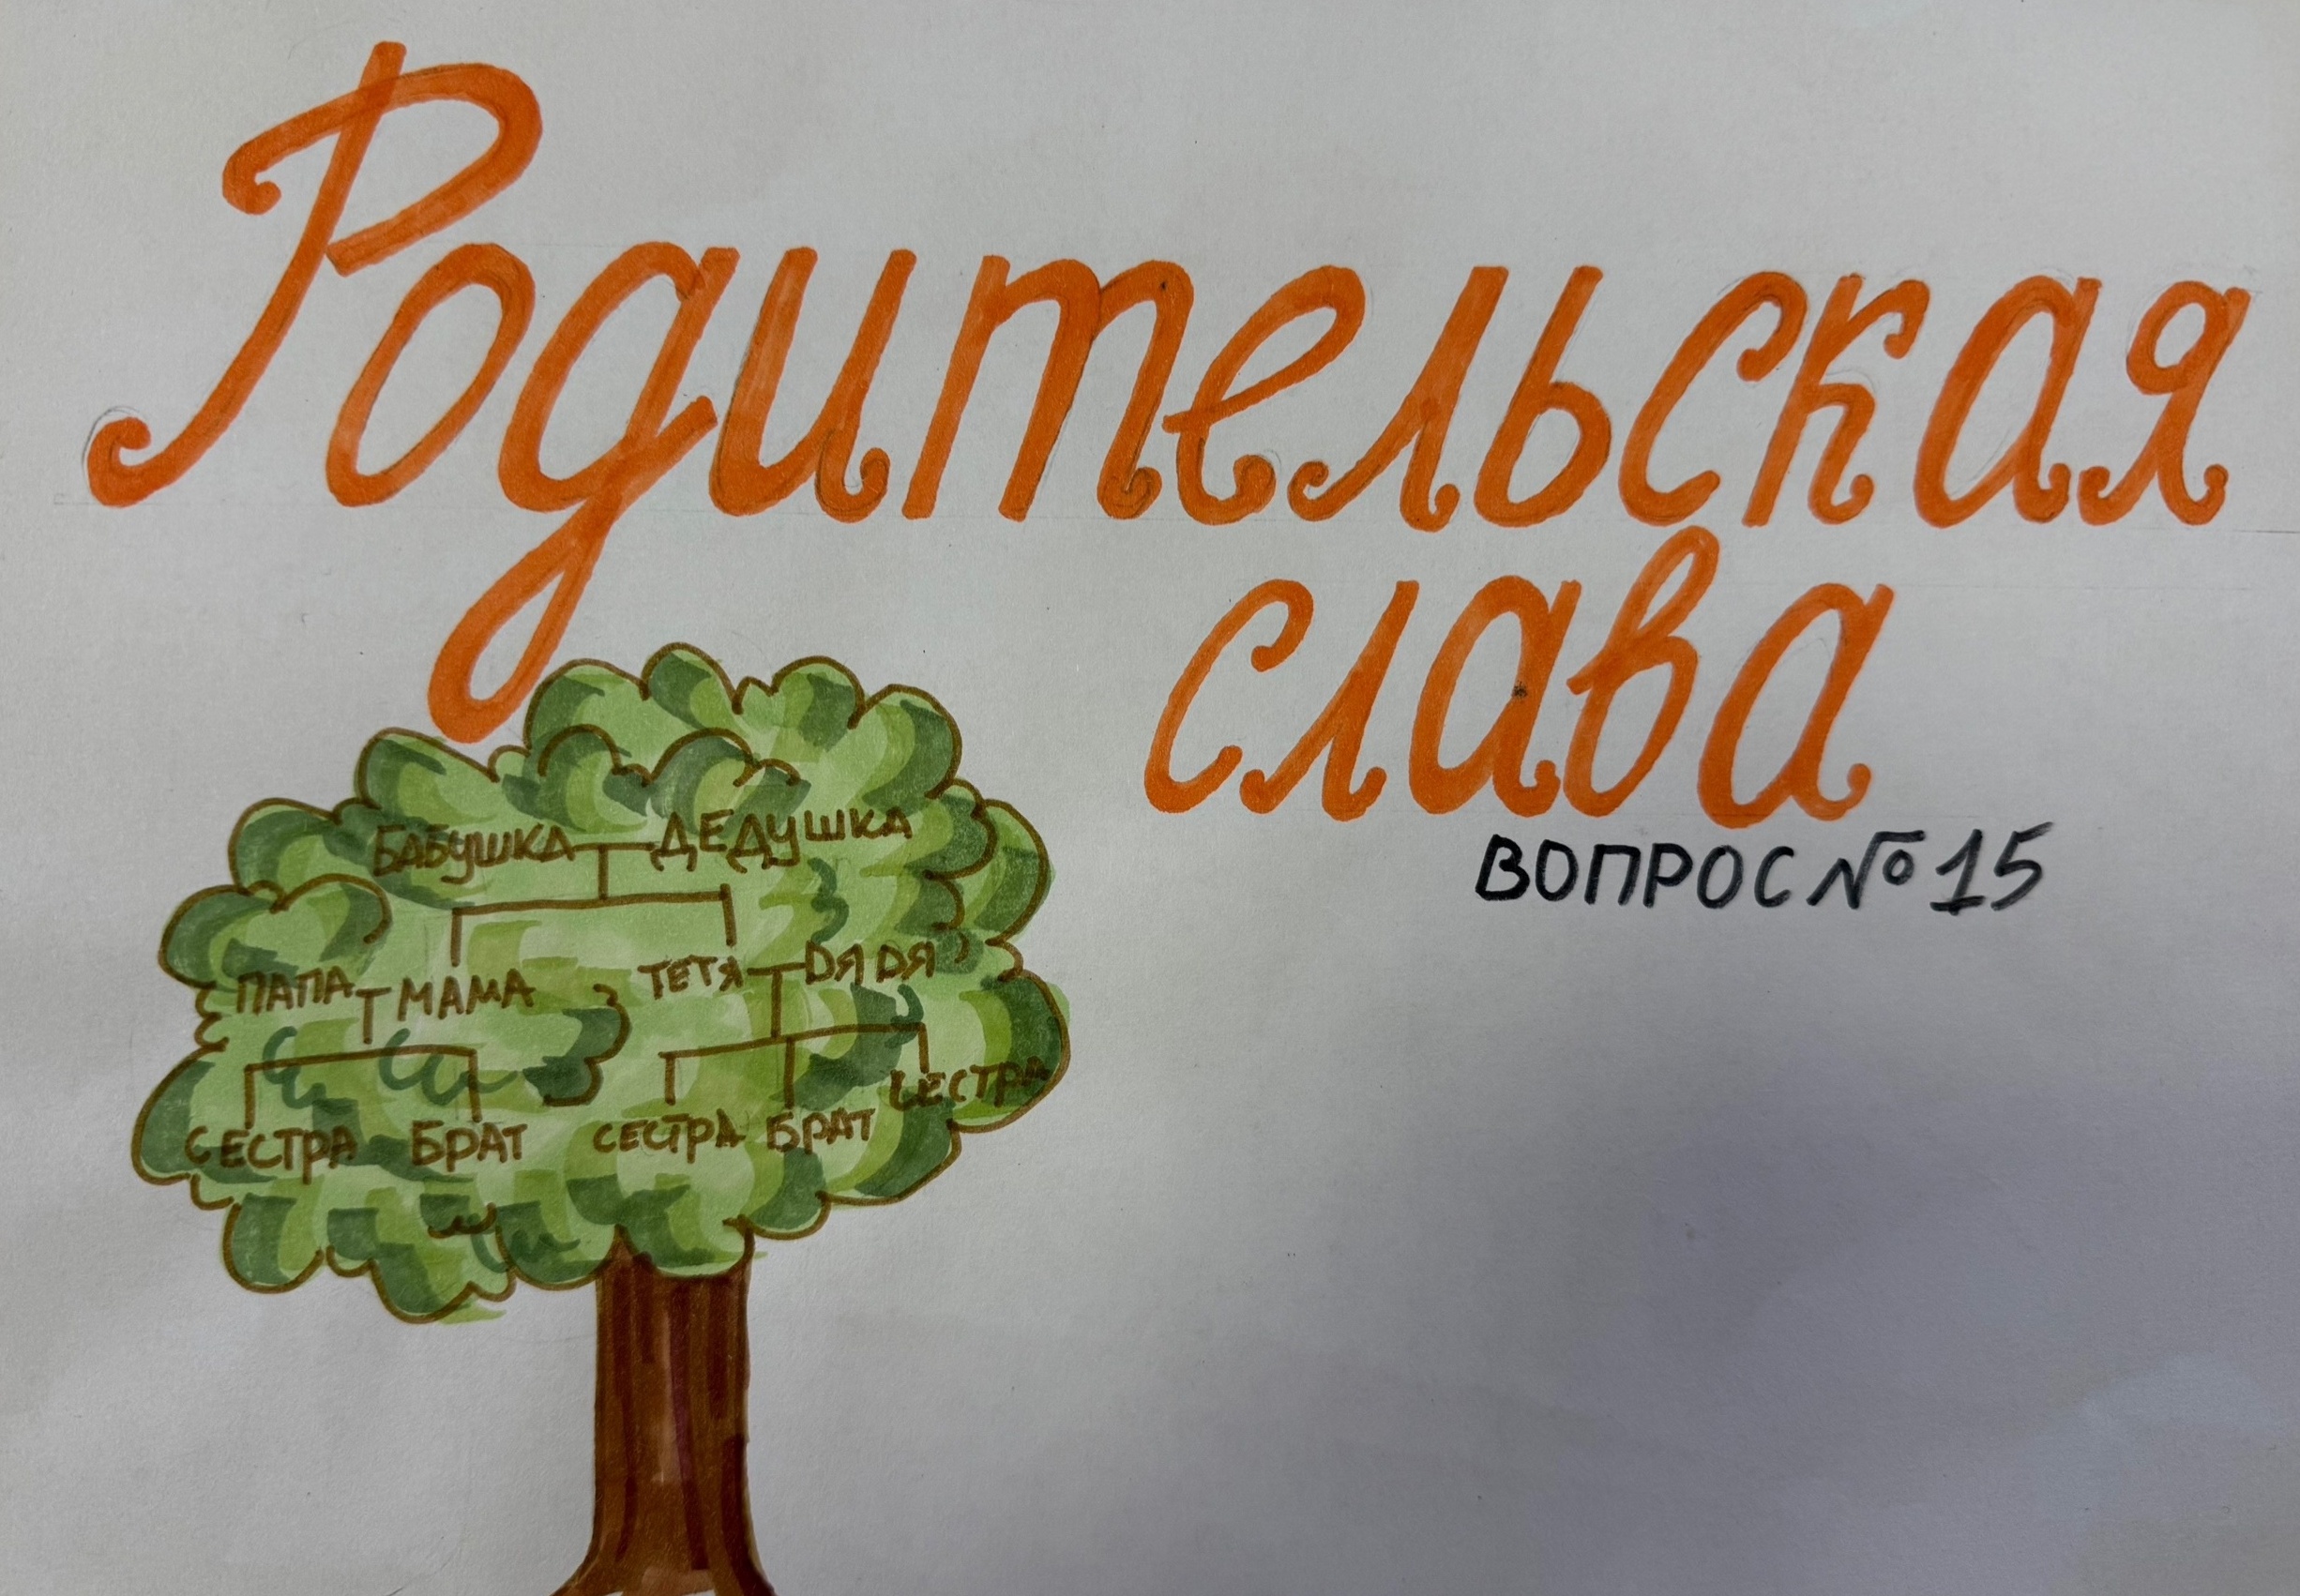 Родительская
слава
ВОПРОС №15
БАБУШКА ДЕДУШКА
ПАПА МАМА ТЕТЯ ДЯДЯ
СЕСТРА БРАТ СЕСТРА БРАТ СЕСТРА